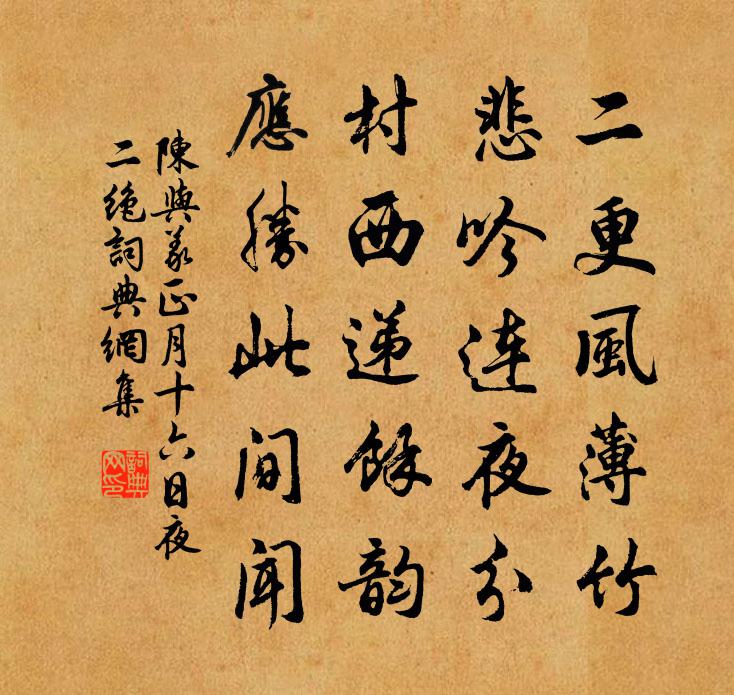 二更風薄竹
悲吟連夜分
村西遞餘韵
應勝此間聞
陳與義正月十六日夜
二绝詞典網集
詞典
网印